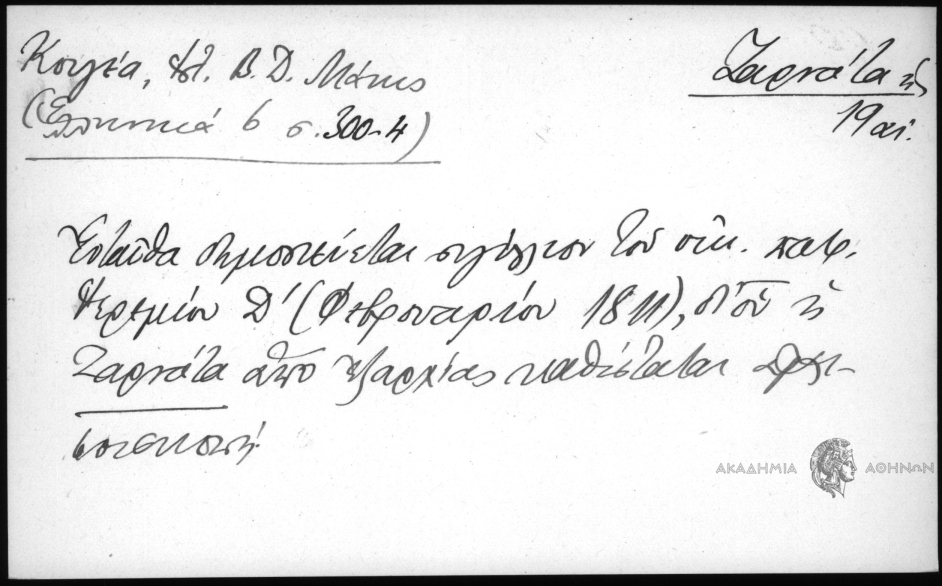 Κουγέα, Ἱστ. Β. Δ. Μάνης
(Ἑλληνικά 6 σ. 300-4)
Ζαρνάτα ἡ
19 αἰ.
Ἐνταῦθα δημοσιεύεται σιγίλλιον τοῦ οἰκ. πατρ.
Ἱερεμίου Δ' (Φεβρουαρίου 1811), δι' οὗ ἡ
Ζαρνάτα ἀπό ἐξαρχίας καθίσταται ἀρχι-
επισκοπή.
ΑΚΑΔΗΜΙΑ ΑΘΗΝΩΝ